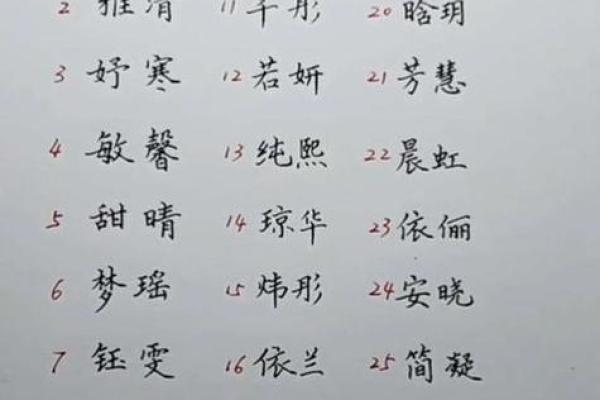 2 雅清 11 千彤 20 晗玥
3 妤寒 12 若妍 21 芳慧
4 敏馨 13 纯熙 22 晨虹
5 甜晴 14 琼华 23 依俪
6 梦瑶 15 炜彤 24 安晓
7 钰雯 16 依兰 25 简凝